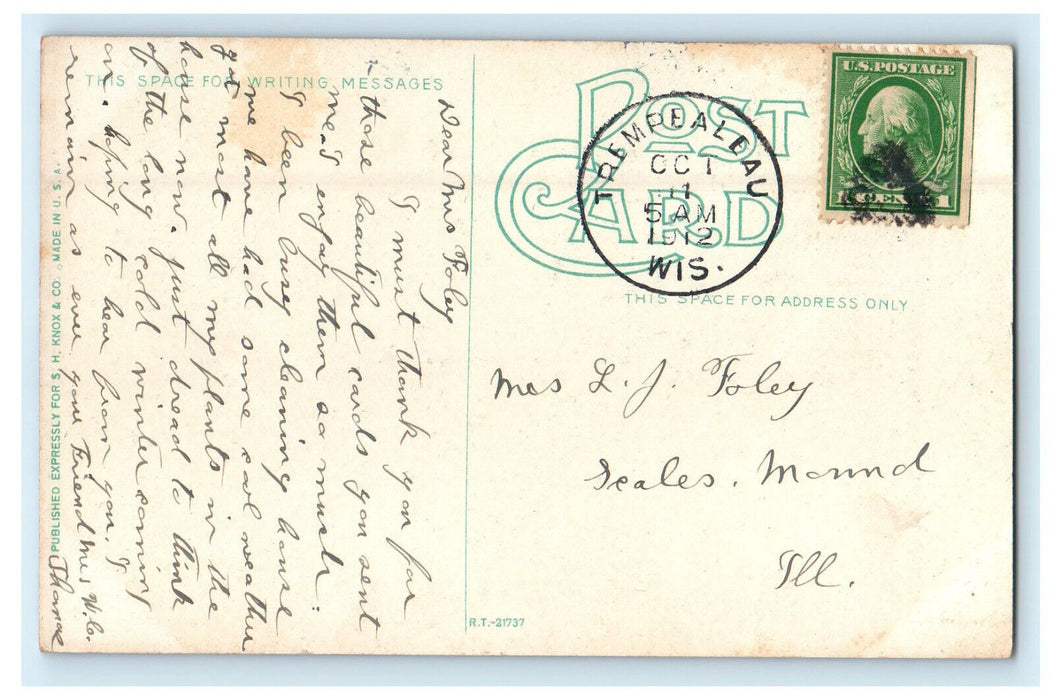 THIS SPACE FOR WRITING MESSAGES
Dear Mrs Foley
I must thank you for
those beautiful cards you sent
me. I enjoy them so much.
I been busy cleaning house
we have had some cool weather
I got most all my plants in the
house now. just dread to think
of the long cold winter coming
on. hoping to hear from you. I
remain as ever your Friend Mrs W.C.
PUBLISHED EXPRESSLY FOR S. H. KNOX & CO., MADE IN U. S. A.
POST
CARD
TREMPEALEAU
OCT
11
5 AM
1912
WIS.
U.S. POSTAGE
1 CENT 1
THIS SPACE FOR ADDRESS ONLY
Mrs L. J. Foley
Scales. Mound
Ill.
R.T.-21737